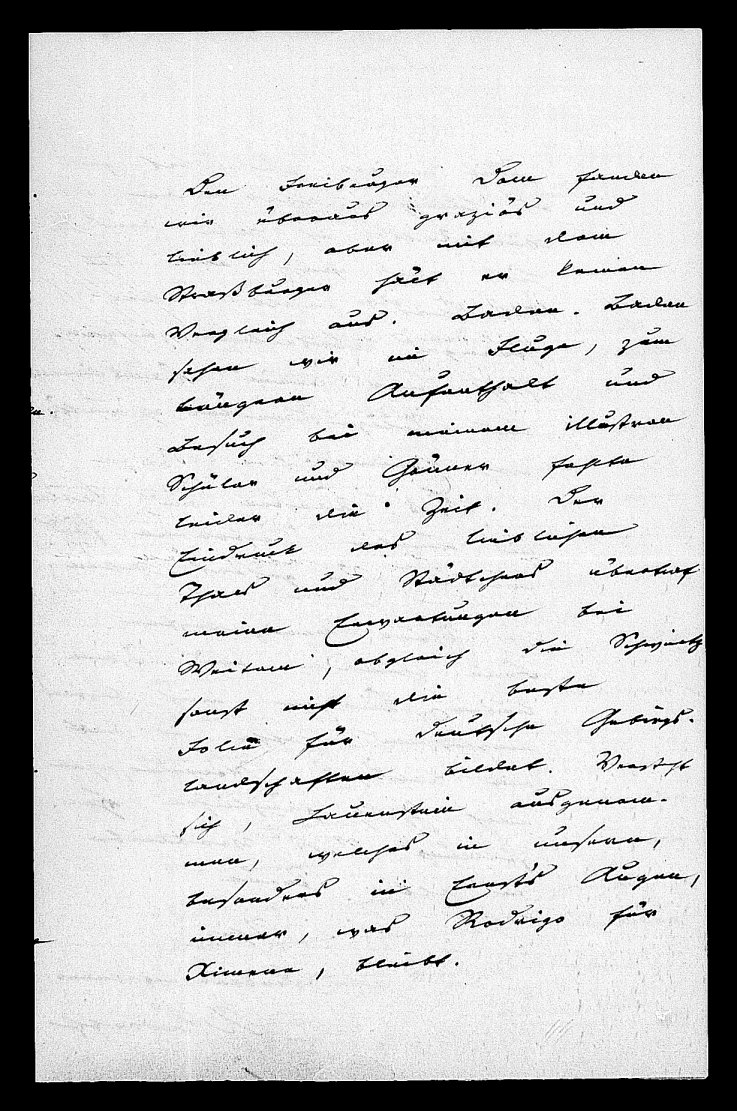 Den Freiburger Dom fanden
wir überaus graziös und
lieblich, aber mit dem
Straßburger hält er keinen
Vergleich aus. Baden-Baden
sahen wir im Fluge, zum
längern Aufenthalt und
Besuch bei meinem illustren
Schüler und Gönner fehlte
leider die Zeit. Der
Eindruck des lieblichen
Thals und Städtchens übertraf
meine Erwartungen bei
Weitem, obgleich die Schweitz
sonst nicht die beste
Folie für deutsche Gebirgs-
landschaften bildet. Versteht
sich, Lauenstein ausgenom-
men, welches in unsern,
besonders in Ernst's Augen,
immer, was Rodrigo für
Ximene, bleibt.